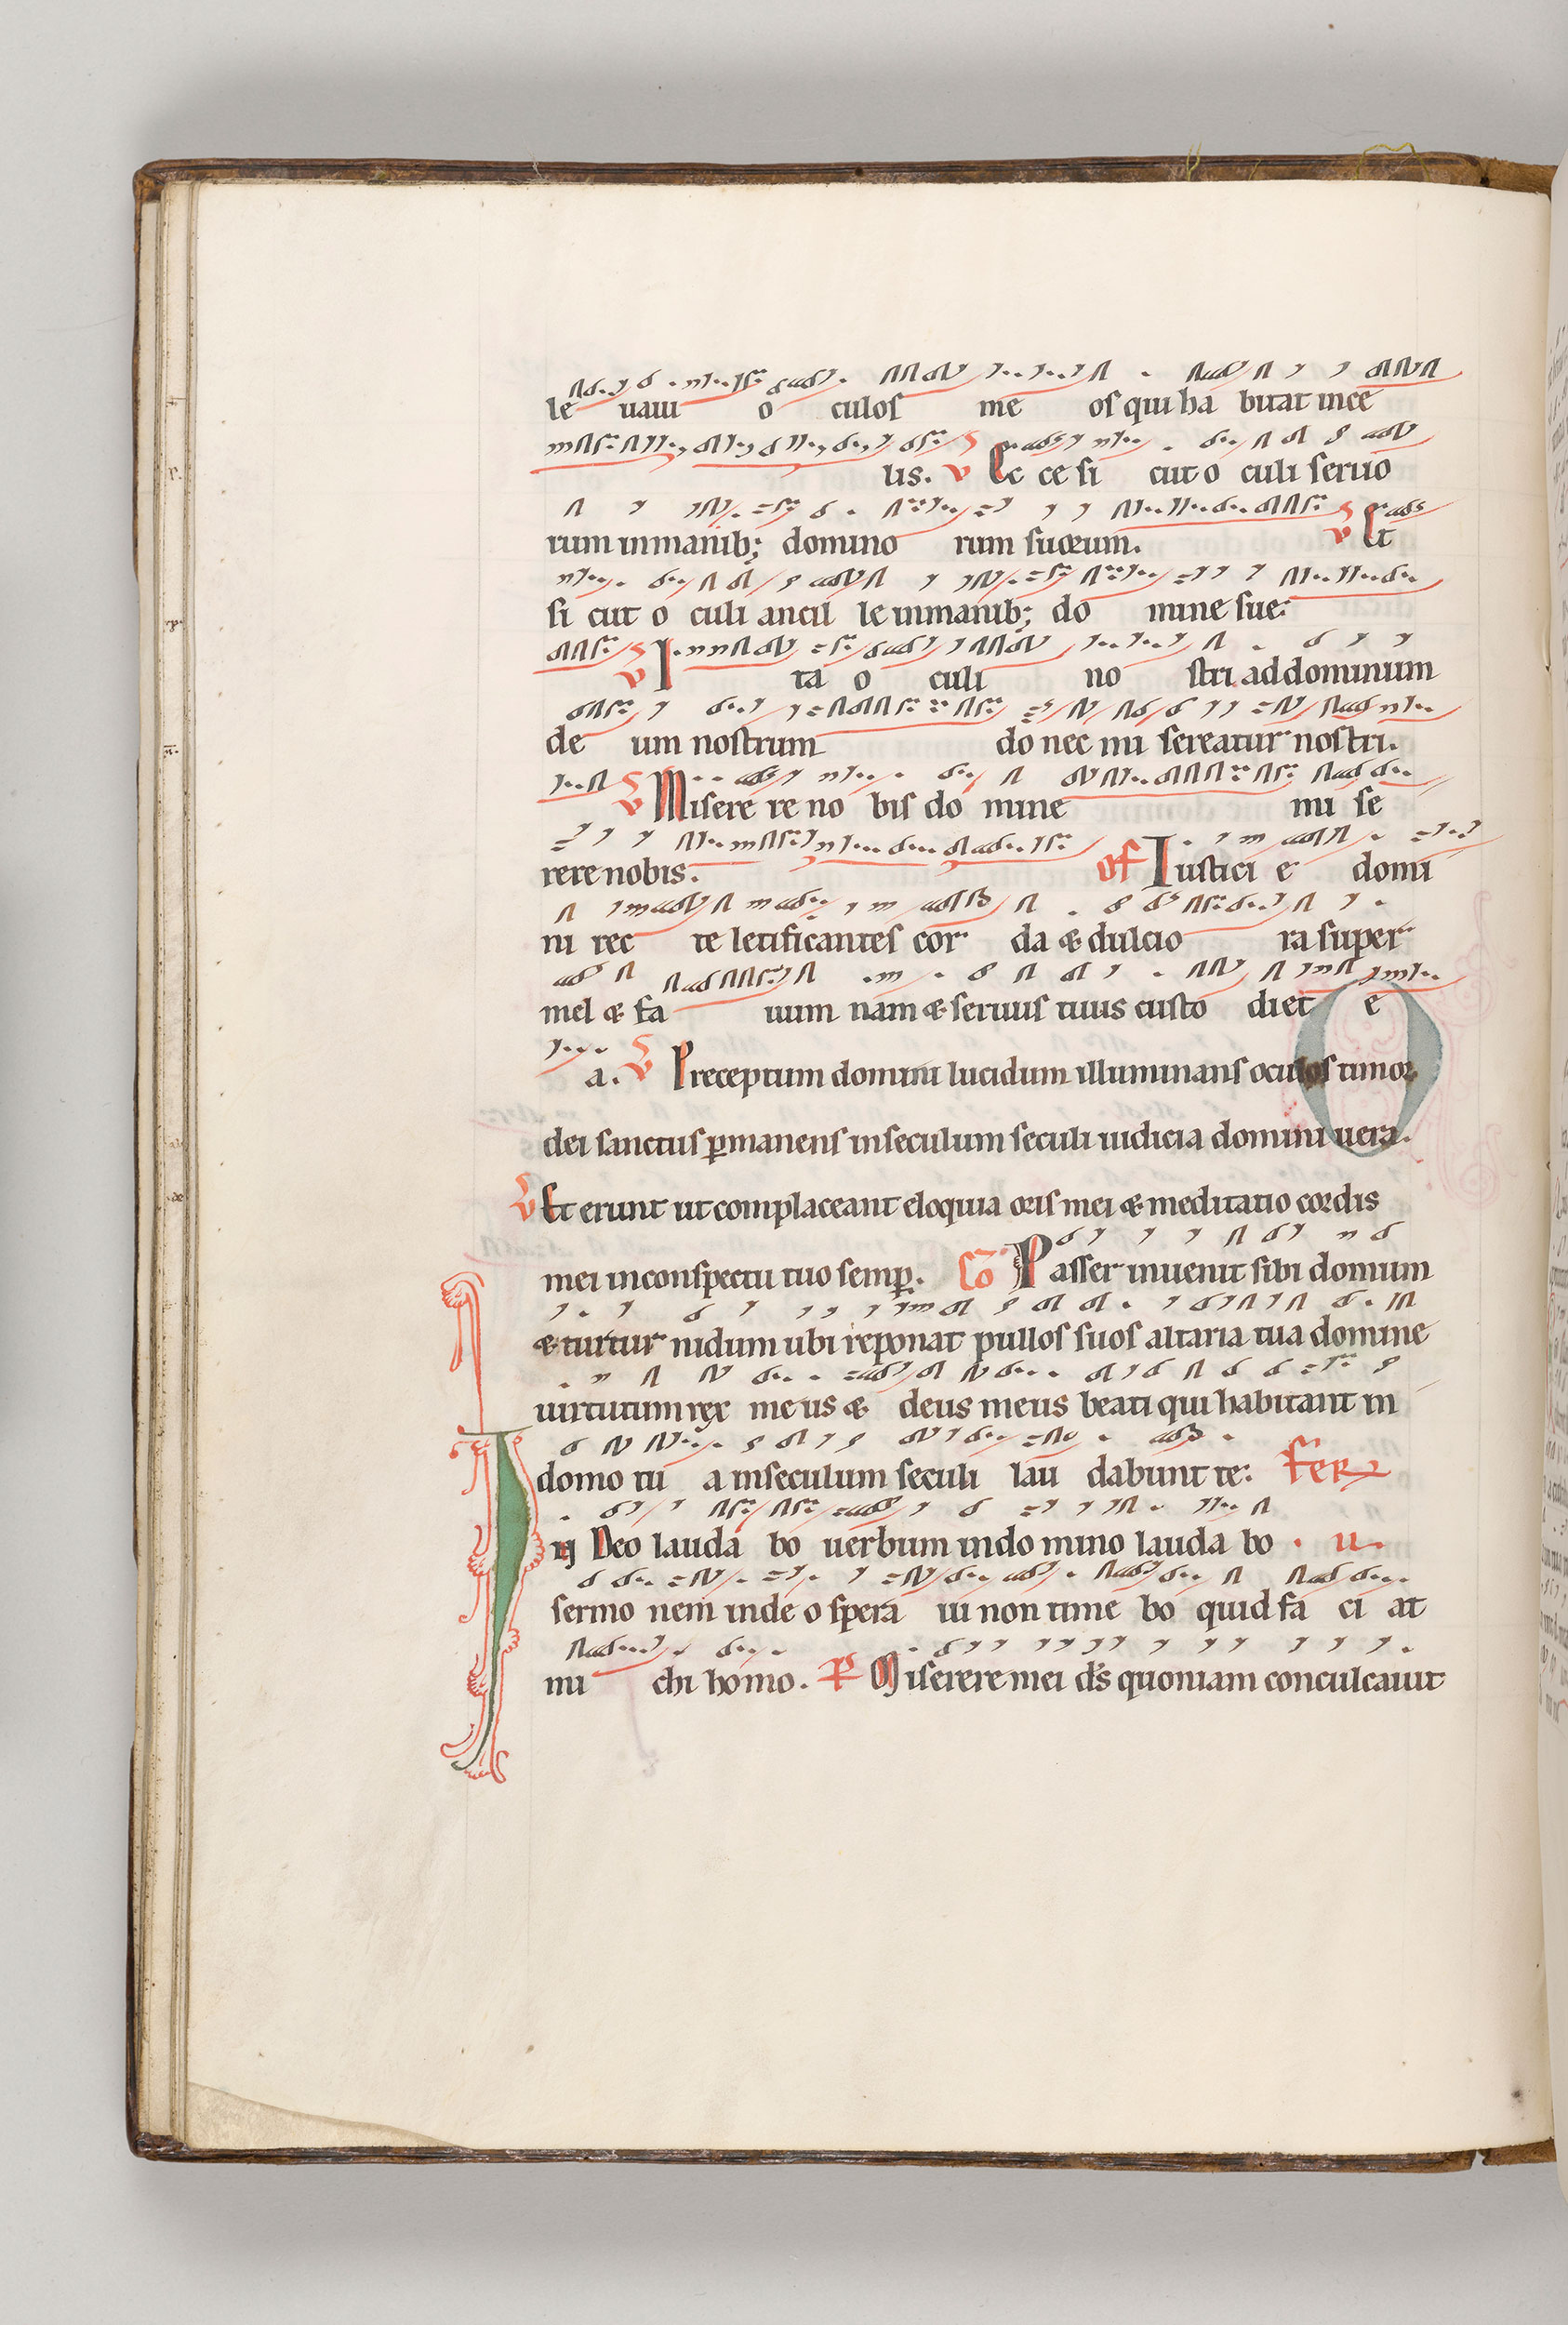 le uaui o culos me os qui ha bitat in ce
lis. v Ec ce si cut o culi seruo
rum in manib; domino rum suorum. v Et
si cut o culi ancil le in manib; do mine sue:
v I ta o culi no stri ad dominum
de um nostrum do nec mi sereatur nostri.
v Misere re no bis do mine mi se
rere nobis. Of Iustici e domi
ni rec te letificantes cor da & dulcio ra super
mel & fa uum nam & seruus tuus custo diet e
a. v Preceptum domini lucidum illuminans oculos timor
dei sanctus ꝑmanens in seculum seculi iudicia domini uera.
v Et erunt ut complaceant eloquia oris mei & meditatio cordis
mei in conspectu tuo semꝑ. Co Passer inuenit sibi domum
& turtur nidum ubi reponat pullos suos altaria tua domine
uirtutum rex me us & deus meus beati qui habitant in
domo tu a in seculum seculi lau dabunt te: Fer
In Deo lauda bo uerbum in do mino lauda bo . ii.
sermo nem in de o spera ui non time bo quid fa ci at
mi chi homo. P Miserere mei ds quoniam conculcauit